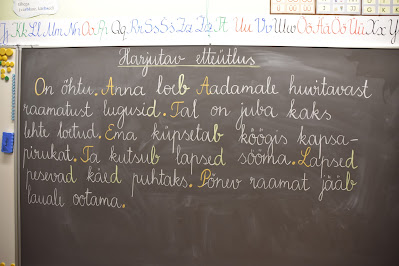 Jj Kk Ll Mm Nn Oo Pp Qq Rr Ss Šš Zz Žž Tt Uu Vv Ww Õõ Ää Öö Üü Xx Yy
Harjutav etteütlus
On õhtu. Anna loeb Aadamale huvitavast
raamatust lugusid. Tal on juba kaks
lehte loetud. Ema küpsetab köögis kapsa-
pirukat. Ta kutsub lapsed sööma. Lapsed
pesevad käed puhtaks. Põnev raamat jääb
lauale ootama.